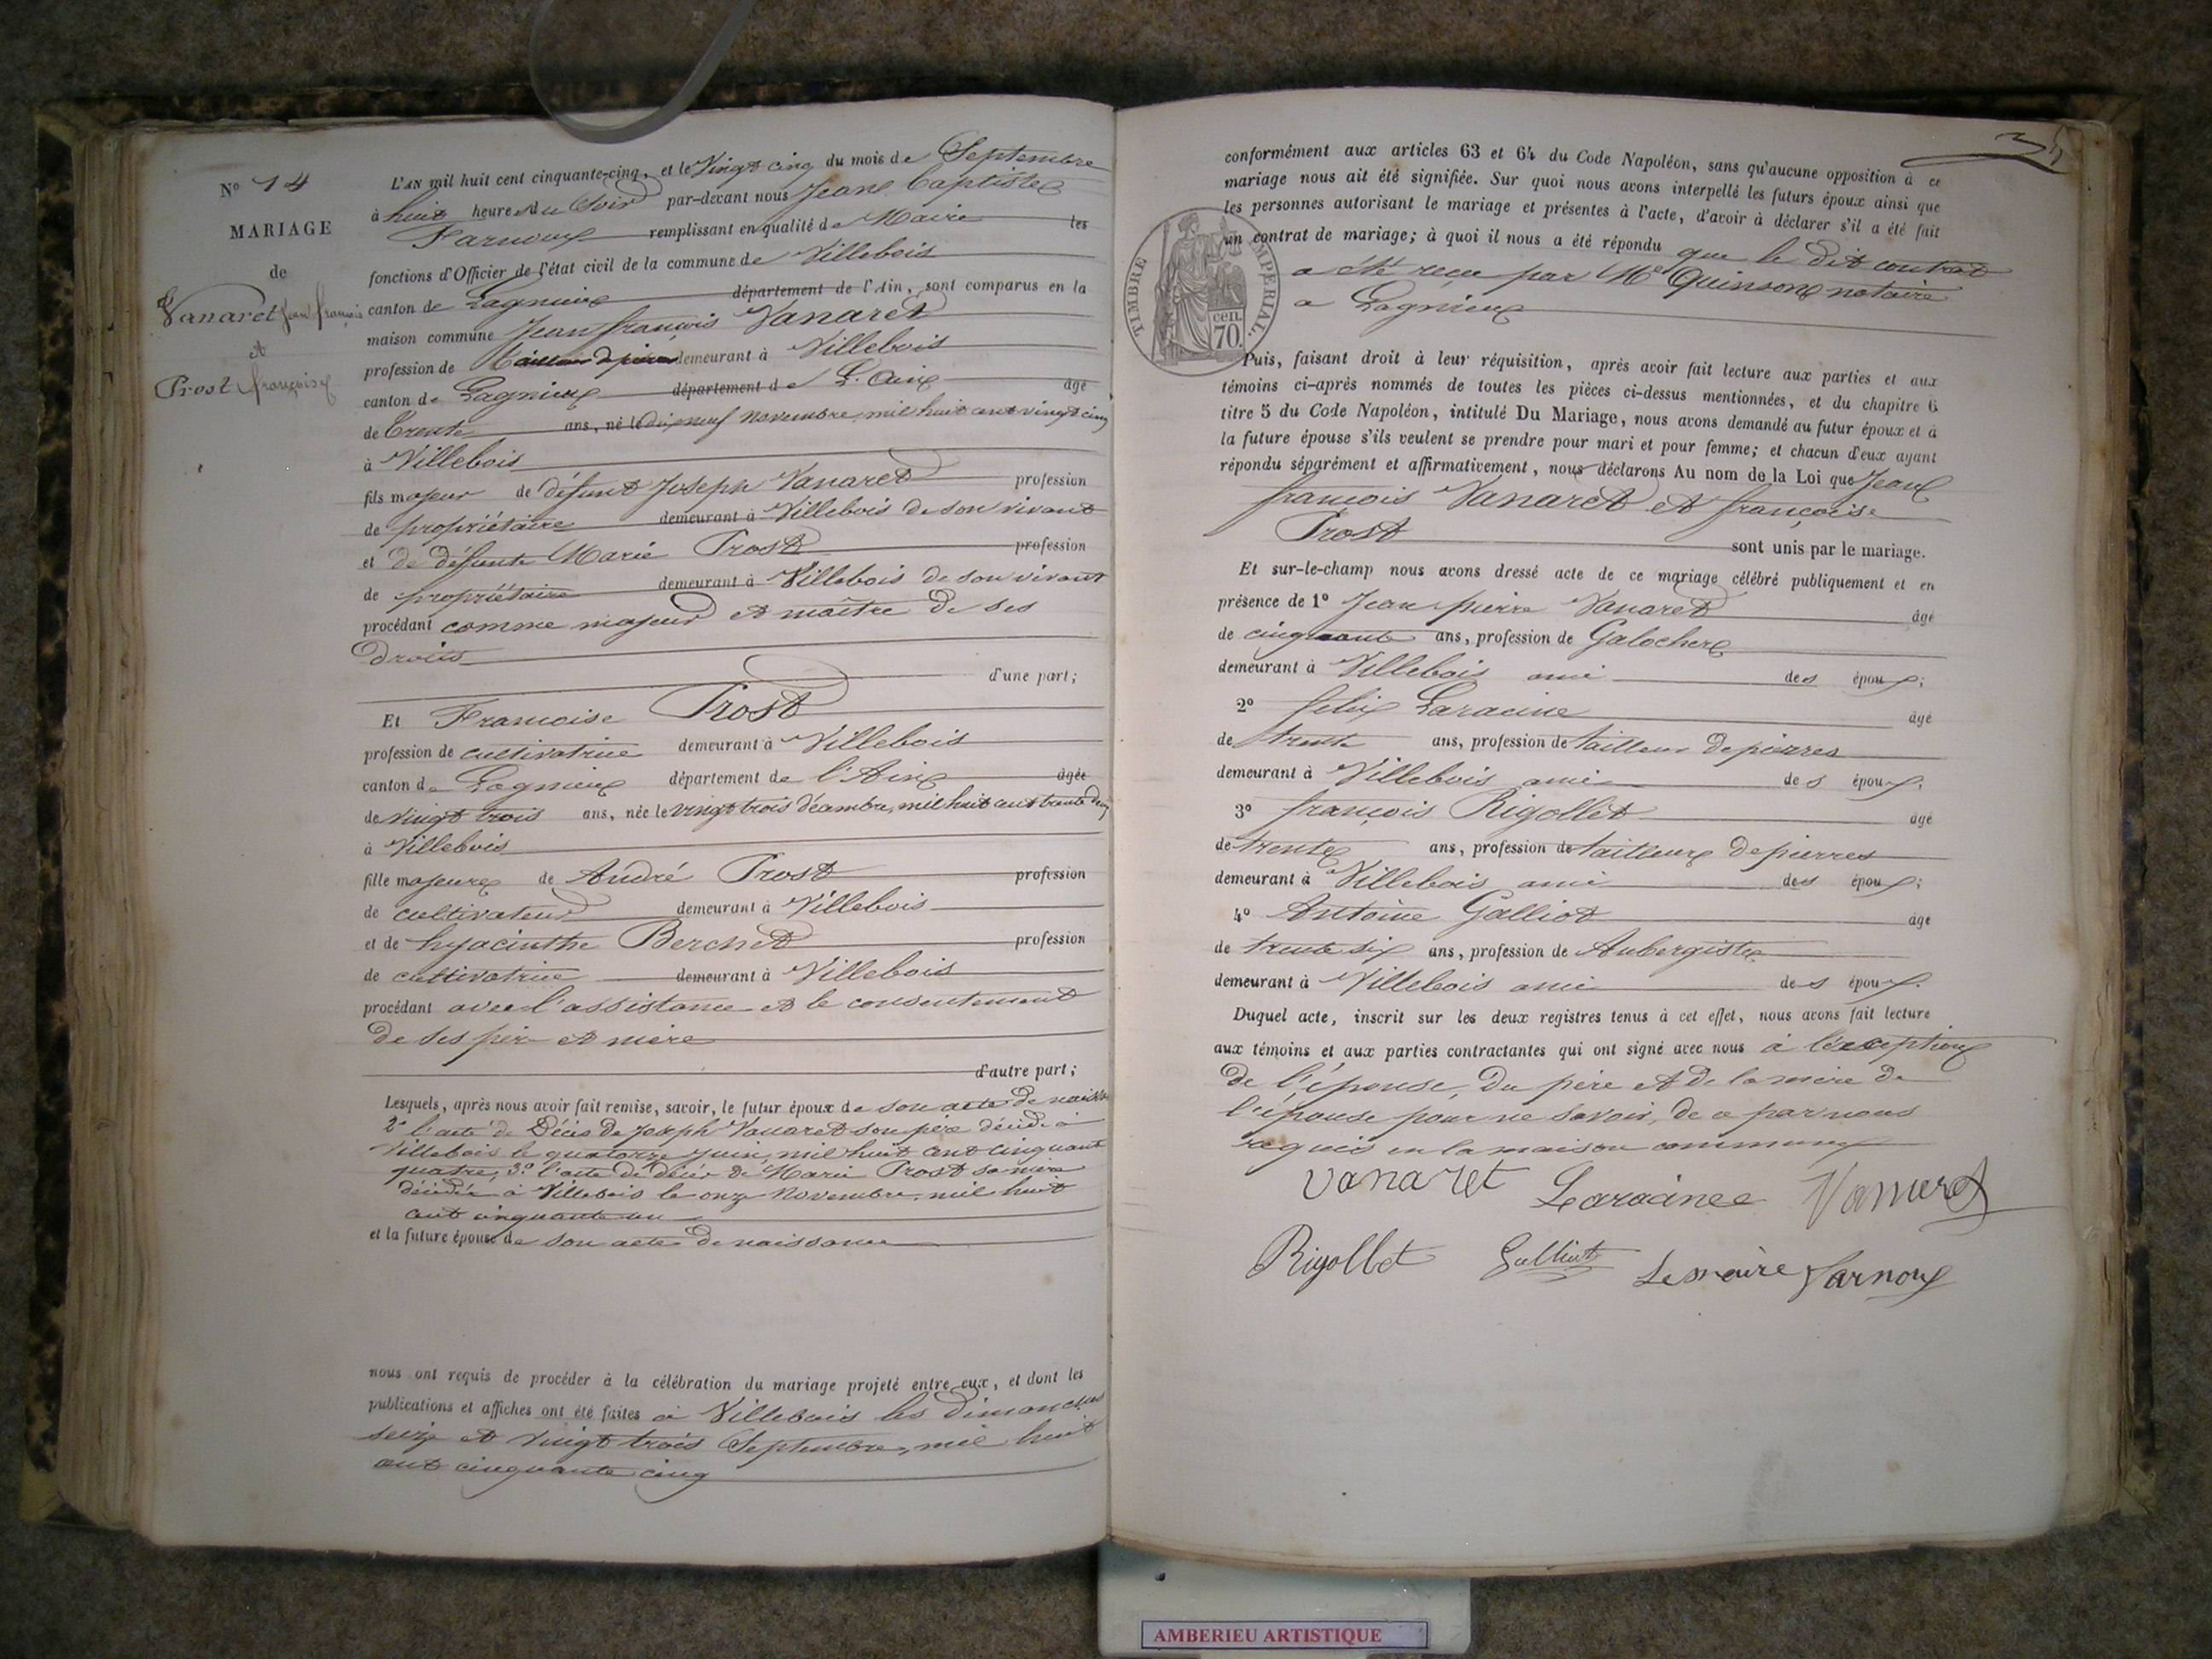 N° 14
MARIAGE
de
Vanaret Jean françois
et
Prost françoise
L'AN mil huit cent cinquante-cinq, et le Vingt cinq du mois de Septembre
à huit heures du Soir par-devant nous Jean Baptiste
Farnoux remplissant en qualité de Maire les
fonctions d'Officier de l'état civil de la commune de Villebois
canton de Lagnieux département de l'Ain, sont comparus en la
maison commune Jean françois Vanaret
profession de demeurant à Villebois
canton de Lagnieux département de L'Ain âgé
de Trente ans, né le dix neuf novembre mil huit cent vingt cinq
à Villebois
fils majeur de défunt Joseph Vanaret profession
de propriétaire demeurant à Villebois de son vivant
et de défunte Marie Prost profession
de propriétaire demeurant à Villebois de son vivant
procédant comme majeur et maître de ses
droits
d'une part;
Et Francoise Prost
profession de cultivatrice demeurant à Villebois
canton de Lagnieux département de l'Ain âgée
de vingt trois ans, née le vingt trois décembre, mil huit cent trente deux
à Villebois
fille majeure de André Prost profession
de cultivateur demeurant à Villebois
et de hyacinthe Berchet profession
de cultivatrice demeurant à Villebois
procédant avec l'assistance et le consentement
de ses père et mère
d'autre part;
Lesquels, après nous avoir fait remise, savoir, le futur époux de son acte de naissance
2° l'acte de Décès de Joseph Vanaret son père décédé à
Villebois le quatorze Juin, mil huit cent cinquante
quatre, 3° l'acte de décès de Marie Prost sa mère
décédée à Villebois le onze Novembre, mil huit
cent cinquante un
et la future épouse de son acte de naissance
nous ont requis de procéder à la célébration du mariage projeté entre eux, et dont les
publications et affiches ont été faites à Villebois les dimanches
seize et vingt trois Septembre, mil huit
cent cinquante cinq
35
conformément aux articles 63 et 64 du Code Napoléon, sans qu'aucune opposition à ce
mariage nous ait été signifiée. Sur quoi nous avons interpellé les futurs époux ainsi que
les personnes autorisant le mariage et présentes à l'acte, d'avoir à déclarer s'il a été fait
un contrat de mariage; à quoi il nous a été répondu que le dit contrat
a été reçu par Me Quinson notaire
a Lagnieux
TIMBRE IMPÉRIAL.
70 cen.
Puis, faisant droit à leur réquisition, après avoir fait lecture aux parties et aux
témoins ci-après nommés de toutes les pièces ci-dessus mentionnées, et du chapitre 6
titre 5 du Code Napoléon, intitulé Du Mariage, nous avons demandé au futur époux et à
la future épouse s'ils veulent se prendre pour mari et pour femme; et chacun d'eux ayant
répondu séparément et affirmativement, nous déclarons Au nom de la Loi que Jean
francois Vanaret et françoise
Prost sont unis par le mariage.
Et sur-le-champ nous avons dressé acte de ce mariage célébré publiquement et en
présence de 1° Jean pierre Vanaret âgé
de cinquante ans, profession de Galocher
demeurant à Villebois ami des époux;
2° felix Laracine âgé
de trente ans, profession de tailleur de pierres
demeurant à Villebois ami des époux;
3° françois Rigollet âgé
de trente ans, profession de tailleur de pierres
demeurant à Villebois ami des époux;
4° Antoine Galliot âgé
de trente six ans, profession de Aubergiste
demeurant à Villebois ami des époux.
Duquel acte, inscrit sur les deux registres tenus à cet effet, nous avons fait lecture
aux témoins et aux parties contractantes qui ont signé avec nous à l'exception
de l'épouse, du père et de la mère de
l'épouse pour ne savoir, de ce par nous
requis en la maison commune
Vanaret Laracinee Vanaret
Rigollet Galliot Le maire Farnoux
AMBERIEU ARTISTIQUE